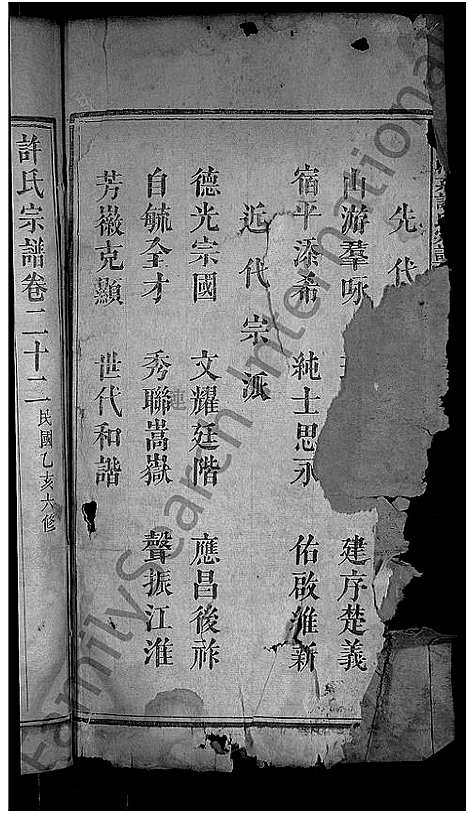 先代
山游羣咏 建序楚義
宿平添希 純士思永 佑啟維新
近代宗派
德光宗國 文耀廷階 應昌後祚
自毓全才 秀聯嵩嶽 聲振江淮
連
芳徽克顯 世代和諧
許氏宗譜卷二十二 民國乙亥六修
FamilySearch International